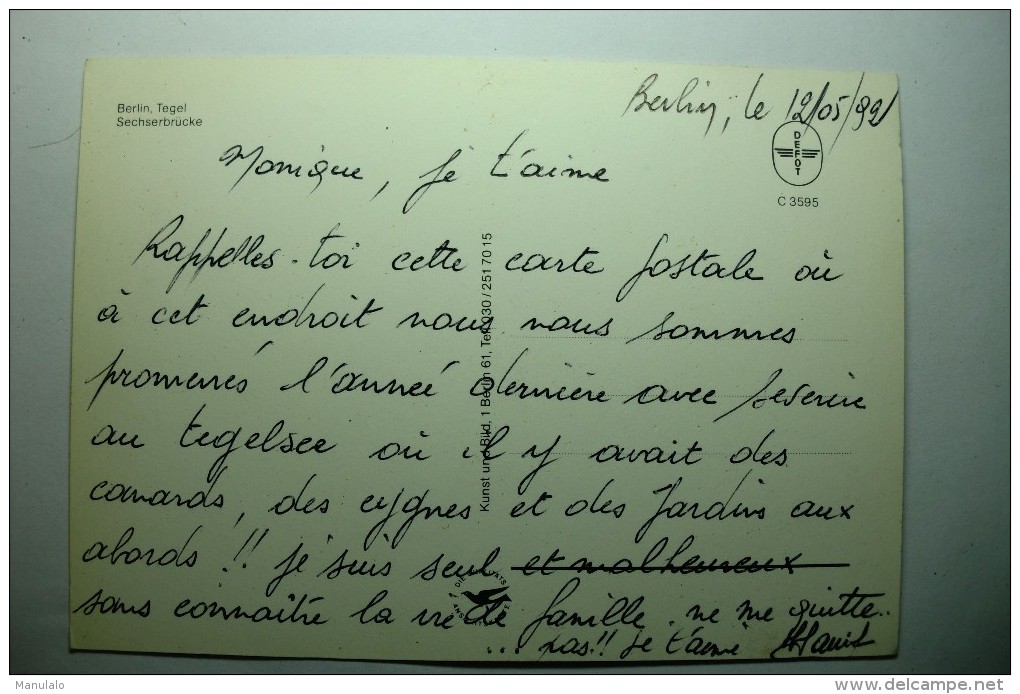 Berlin, Tegel
Sechserbrücke
Berlin, le 12/05/92
DEFOT
C 3595
Monique, je t'aime
Rappelles-toi cette carte postale où
à cet endroit nous nous sommes
promenés l'année dernière avec Severine
au tegelsee où il y avait des
canards, des cygnes et des Jardins aux
abords !! je suis seul et malheureux
sans connaître la vie de famille. ne me quitte..
... pas!! je t'aime
Kunst und Bild, 1 Berlin 61, Tel. 030 / 251 70 15
Manulalo
delcampe.net